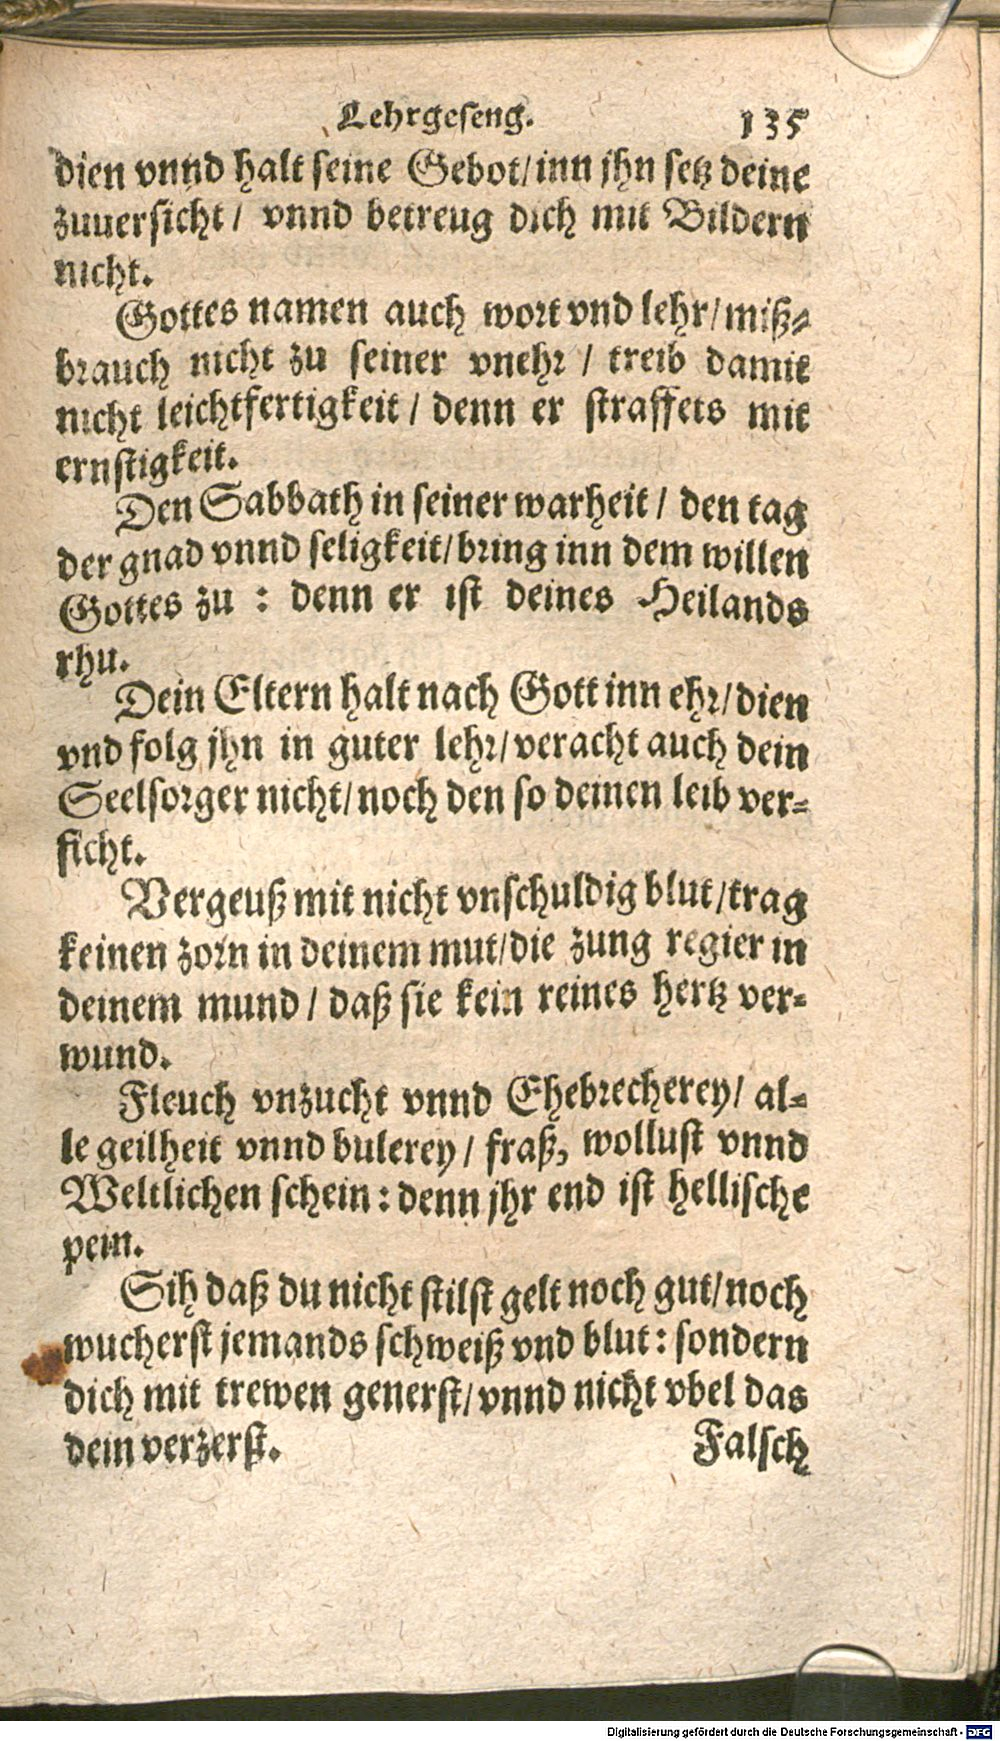 Lehrgeseng. 135
dien vnnd halt seine Gebot/inn jhn setz deine
zuuersicht/ vnnd betreug dich mit Bildern
nicht.
Gottes namen auch wort vnd lehr/miß-
brauch nicht zu seiner vnehr / treib damit
nicht leichtfertigkeit / denn er straffets mit
ernstigkeit.
Den Sabbath in seiner warheit / den tag
der gnad vnnd seligkeit/bring inn dem willen
Gottes zu : denn er ist deines Heilands
rhu.
Dein Eltern halt nach Gott inn ehr/dien
vnd folg jhn in guter lehr/veracht auch dein
Seelsorger nicht/noch den so deinen leib ver-
ficht.
Vergeuß mit nicht vnschuldig blut/trag
keinen zorn in deinem mut/die zung regier in
deinem mund / daß sie kein reines hertz ver-
wund.
Fleuch vnzucht vnnd Ehebrecherey/ al-
le geilheit vnnd bulerey / fraß, wollust vnnd
Weltlichen schein : denn jhr end ist hellische
pein.
Sih daß du nicht stilst gelt noch gut/noch
wucherst jemands schweiß vnd blut : sondern
dich mit trewen generst/vnnd nicht vbel das
dein verzerst. Falsch
Digitalisierung gefördert durch die Deutsche Forschungsgemeinschaft - DFG